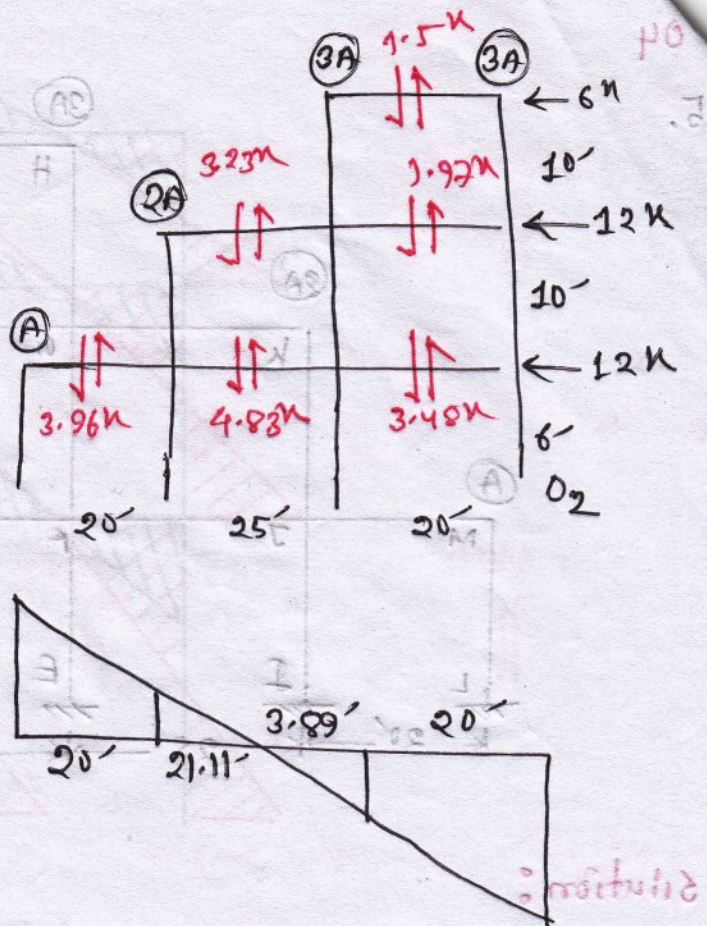 1.5k
3A 3A
← 6k
3.23k 1.97k 10'
2A
← 12k
10'
A
← 12k
3.96k 4.83k 3.48k
6'
O2
20' 25' 20'
3.89' 20'
20' 21.11'